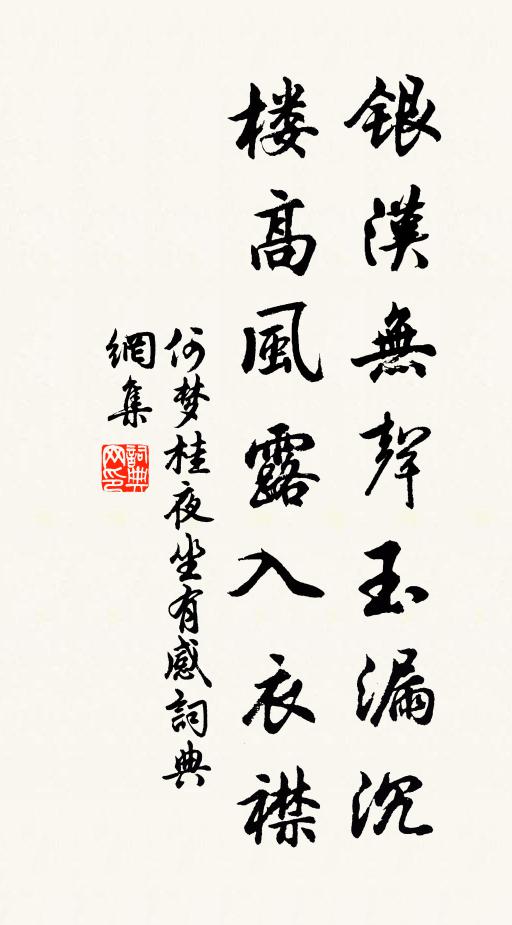 銀漢無聲玉漏沉
楼高風露入衣襟
何梦桂夜坐有感詞典
網集
詞典网印